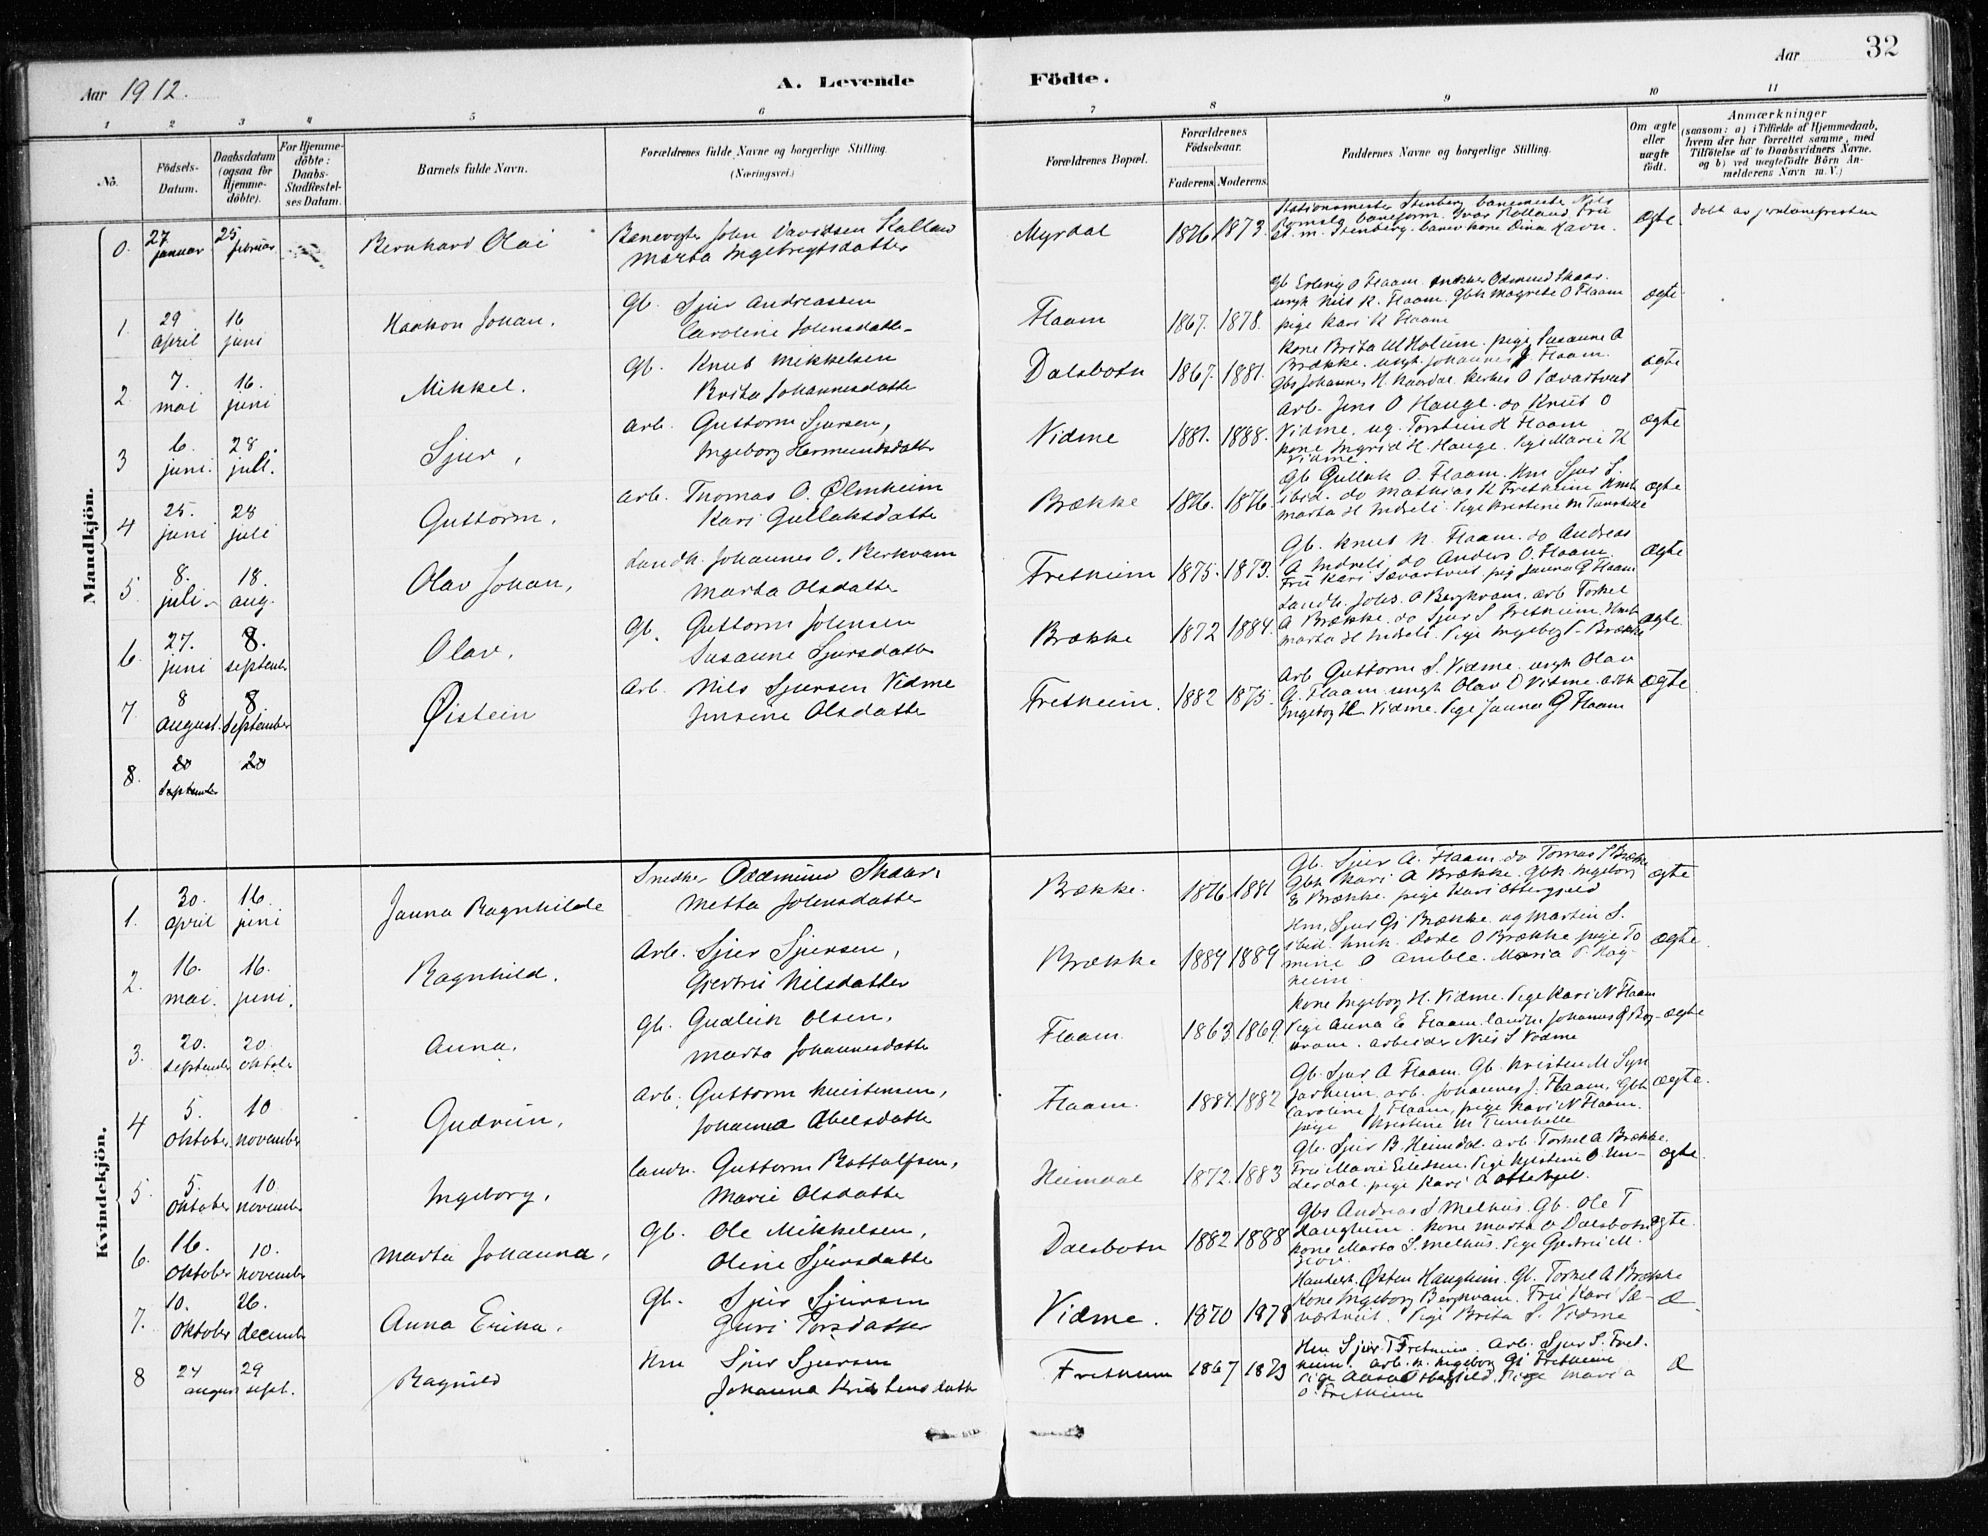 Aar 1912.
A. Levende
Födte.
Aar
32
1 2 3 4 5 6 7 8 9 10 11
No.
Födsels-Datum.
Daabsdatum (ogsaa for Hjemme-döbte).
For Hjemme-döbte: Daabs-Stadfæstel-ses Datum.
Barnets fulde Navn.
Forældrenes fulde Navne og borgerlige Stilling.
(Næringsvei.)
Forældrenes Bopæl.
Forældrenes Födselsaar.
Faderens. Moderens.
Faddernes Navne og borgerlige Stilling.
Om ægte eller uægte født.
Anmærkninger
(saasom: a) i Tilfælde af Hjemmedaab, hvem der har forrettet samme, med Tilföielse af to Daabsvidners Navne. og b) ved uægtefödte Börn An-melderens Navn m. V.)
Mandkjön.
0. 27 januar 25 februar Bernhard Olai Banevogter John Davidsen Kalland
Marta Ingebrigtsdatter Myrdal 1876 1873. Stationsmester Stenberg banemester Nils
baneform. Ivar Rolland, Fru
st. m. Stenberg. kone Dina Ravn. ægte.
1. 29 april 16 juni Haakon Johan. Gb. Sjur Andreassen
Caroline Johnsdatter Flaam 1867. 1878. Gb Erling O Flaam snekker Odmund Skaar.
ungk Nils K. Flaam. Gbk Magrete O Flaam
pige Kari K Flaam ægte
2. 7. mai 16. juni Mikkel. Gb. Knut Mikkelsen
Brita Johannesdatter Dalsbotn 1867. 1881. Kone Brita M Holum. pige Susanne A
Brække. ungk. Johannes J. Flaam.
Gbs Johannes H. Naardal. ægte
3 6. juni. 28. juli. Sjur, arb. Guttorm Sjursen,
Ingeborg Hermundsdatter Vidme 1881. 1888. Arb. Jens O Hauge. do Knut O
Vidme. ug. Torstein H Flaam
kone Ingrid H. Hauge. Pige Marie K
Vidme ægte
4 25. juni 28 juli Guttorm. arb. Thomas O. Ølmheim
Kari Gullaksdatter Brække 1876. 1876. Gb Gullak O. Flaam. Hm Sjur S.
ibid. do Mathias K Fretheim Hmk
Marta H Indreli. Pige Kristine M Tunshelle ægte
5 8. juli 18. aug. Olav Johan, Landh. Johannes O. Berkvam
Marta Olsdatter Fretheim 1875. 1873. Gb. Knut N. Flaam. do Andreas
A Indreli, do Anders O. Flaam.
Fru Kari Sævartveit. pig Janna G Flaam ægte
6. 27. juni 8. september Olav. Gb. Guttorm Johnsen
Susanne Sjursdatter Brække 1872 1884. Landh. Johs. O Bergkvam. arb Torkel
A Brække. do Sjur S Fretheim. Hmk
Marta H Indreli. Pige Ingeborg Brække ægte.
7 8 august. 8 september Øistein Arb. Nils Sjursen Vidme
Jensine Olsdatter Fretheim. 1882 1875. Arb Guttorm S. Vidme. ungk Olav
G. Flaam ungk Olav O Vidme. arbk
Ingeborg H Vidme. Pige Janna G Flaam ægte
8. 20 september 20
Kvindekjön.
1. 30. april 16. juni Janna Ragnhilde Snedker Oddmund Skaar,
Metta Johnsdatter Brække. 1876. 1881 Gb. Sjur A. Flaam. do Tomas S Brække
Gbk Kari A Brække. Gbk Ingeborg
E Brække. pige Kari Ottergjeld ægte
2. 16. mai. 16. juni. Ragnhild. Arb. Sjur Sjursen,
Gjertrui Nilsdatter Brække 1884 1889 Hm, Sjur Gj Brække. ug Martin S.
ibid. O Brække pige To
mine O Amble. Maria P. Høg-
heim ægte.
3. 20. september 20. oktober Anna. Gb. Gudleik Olsen.
Marta Johannesdatter Flaam. 1863. 1869. Kone Ingeborg H. Vidme. Pige Kari N Flaam
Pige Anna E Flaam. landh. Johannes O Berg-
kvam. arbeider Nils S Vidme ægte
4 5. oktober 10 november Gudrun, Arb. Guttorm Kristensen,
Johanna Abelsdatter Flaam. 1884. 1882 Gb. Sjur A Flaam. Gb. Kristen M Syn
jarheim arb. Johannes J. Flaam, Gbk
Caroline J Flaam, pige Kari N Flaam.
pige Kristine M Tunshelle ægte.
5 5. oktober 10 november Ingeborg, landh. Guttorm Bottolfsen,
Marie Olsdatter Heimdal 1872. 1883 Gb. Sjur B Heimdal. arb Torkel A Brække.
Fru Marie Eilertsen. Pige Kjerstine O Un-
derdal. pige Kari ægte.
6. 16. oktober 10. november Marta Johanna, Gb. Ole Mikkelsen,
Oline Sjursdatter Dalsbotn 1882 1888 Gbs Andreas S Melhus. Gb. Ole T
Haugheim. kone Marta O Dalsbotn
kone Marta S. Melhus. Pige Gjertrui M. ægte.
7. 10. oktober 26. december Anna Erika. Gb. Sjur Sjursen
Guri Torsdatter Vidme. 1870 1878 Handelsb. Østen Haugheim. Gb. Torkel A Brække
Kone Ingeborg Bergkvam. Fru Kari Sæ-
vartveit. Pige Brita S. Vidme Æ
8 24 august 29 sept. Ragnild Hm Sjur Sjursen
Johanna Kristensdatter Fretheim 1867 1873 Hm Sjur T Fretheim. Arb. Sjur S. Fret-
heim. arb. k. Ingeborg Gj Fretheim
Pige Maria
O. Fretheim Æ